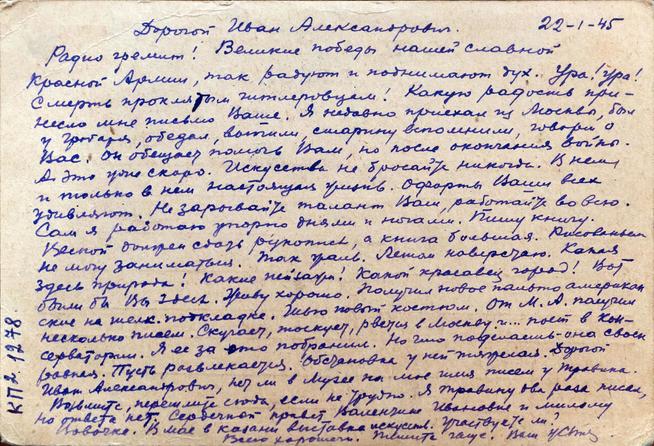 Дорогой Иван Александрович. 22-1-45
Радио гремит! Великие победы нашей славной
Красной Армии, так радуют и поднимают дух. Ура! Ура!
Смерть проклятым гитлеровцам! Какую радость при-
несло мне письмо Ваше. Я недавно приехал из Москвы, был
у Грабаря, обедал, выпили, старину вспомнили, говори о
Вас. Он обещает помочь Вам, но после окончания войны.
А это уже скоро. Искусства не бросайте никогда. В нем
и только в нем настоящая жизнь. Офорты Ваши всех
удивляют. Не зарывайте талант Ваш, работайте во всю.
Сам я работаю упорно днями и ночами. Пишу книгу.
Весной должен сдать рукопись, а книга большая. Рисованьем
не могу заниматься. Так жаль. Летом наверстаю. Какая
здесь природа! Какие пейзажи! Какой красавец город! Вот
были бы Вы здесь. Живу хорошо. Получил новое пальто американ
ские на шелк. подкладке. Шью новый костюм. От М.А. получил
несколько писем. Скучает, тоскует, рвется в Москву и... поет в кон-
серватории. Я ее за это побранил. Но что поделаешь-она своен
равная. Пусть развлекается. Обстановка у ней тяжелая. Дорогой
Иван Александрович, нет ли в Музее на мое имя писем у Травина.
Возьмите, перешлите сюда, если не трудно. Я Травину два раза писал,
но ответа нет. Сердечный привет Валентине Ивановне и милому
Вовочке. В мае в Казани выставка искусств. Участвуете ли.
Всего хорошего. Пишите чаще. Ваш
КП2.1278.